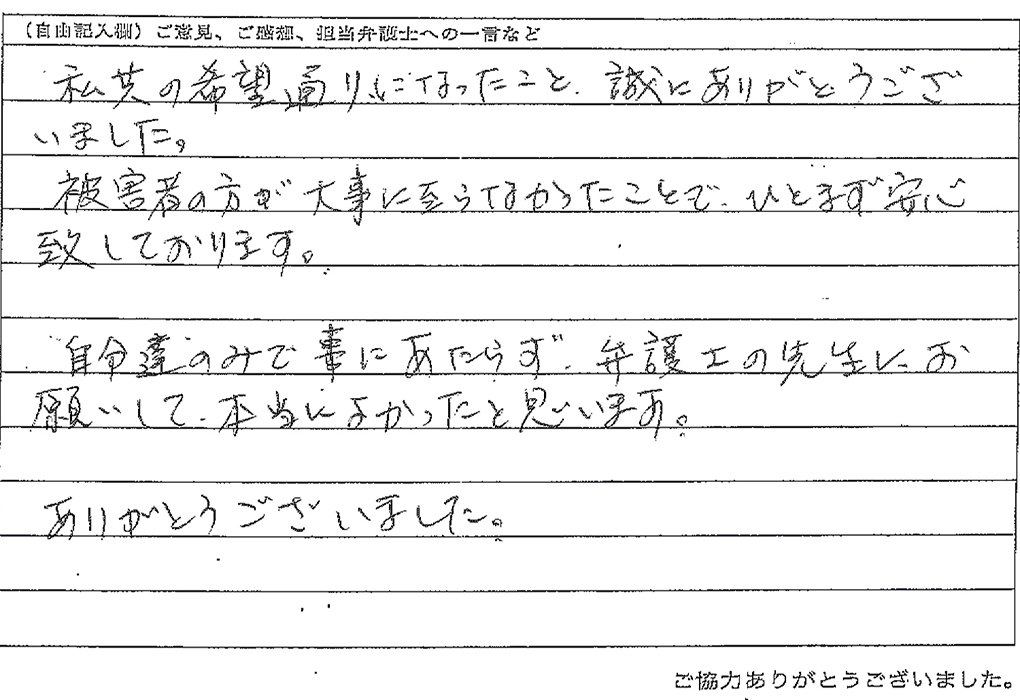 （自由記入欄）ご意見、ご感想、担当弁護士への一言など
私共の希望通りになったこと、誠にありがとうござ
いました。
被害者の方が大事に至らなかったことで、ひとまず安心
致しております。
自分達のみで事にあたらず、弁護士の先生にお
願いして、本当によかったと思います。
ありがとうございました。
ご協力ありがとうございました。